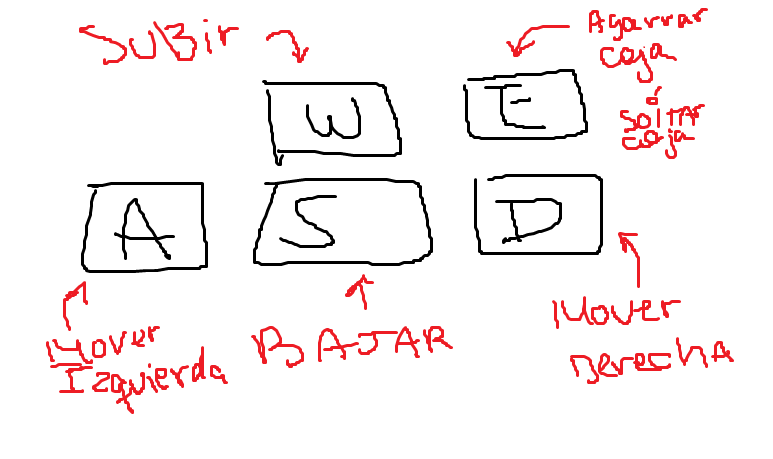 SUBir
Agarrar
caja
ó
SOlTAR
caja
W
E
A
S
D
Mover
Izquierda
BAJAR
Mover
DerechA